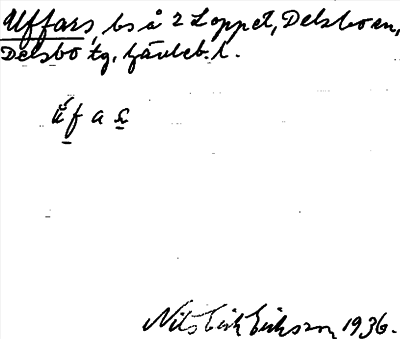 Uffars, bs å 2 Loppet, Delsbo en,
Delsbo tg, Gävleb. l.
u̠f a s̠
Nils Erik Eriksson 1936.